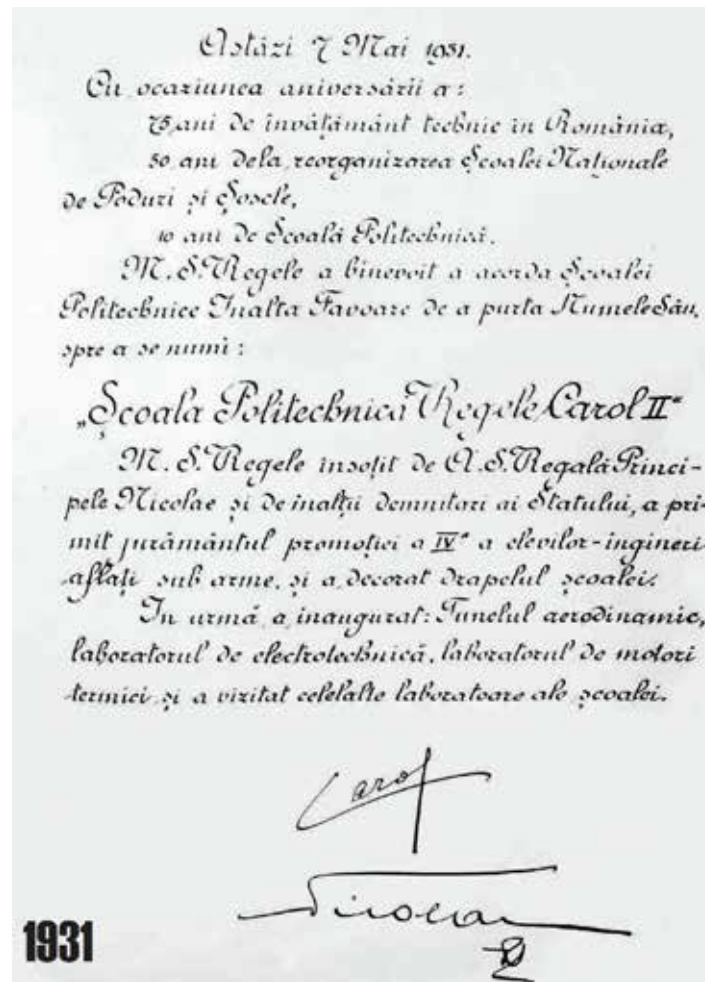 Astăzi 7 Mai 1931.
Cu ocaziunea aniversării a:
75 ani de învățământ technic în România,
50 ani dela reorganizarea Școalei Naționale
de Poduri și Șosele,
10 ani de Școală Politechnică.
M. S. Regele a binevoit a acorda Școalei
Politechnice Înalta Favoare de a purta Numele Său,
spre a se numi:
„Școala Politechnică Regele Carol II“
M. S. Regele însoțit de A. S. Regală Princi-
pele Nicolae și de înalții demnitari ai Statului, a pri-
mit jurământul promoției a IV-a a elevilor-ingineri
aflați sub arme, și a decorat drapelul școalei.
In urmă a inaugurat: Tunelul aerodinamic,
laboratorul de electrotechnică, laboratorul de motori
termici și a vizitat celelalte laboratoare ale școalei.
Carol
Nicolae
1931